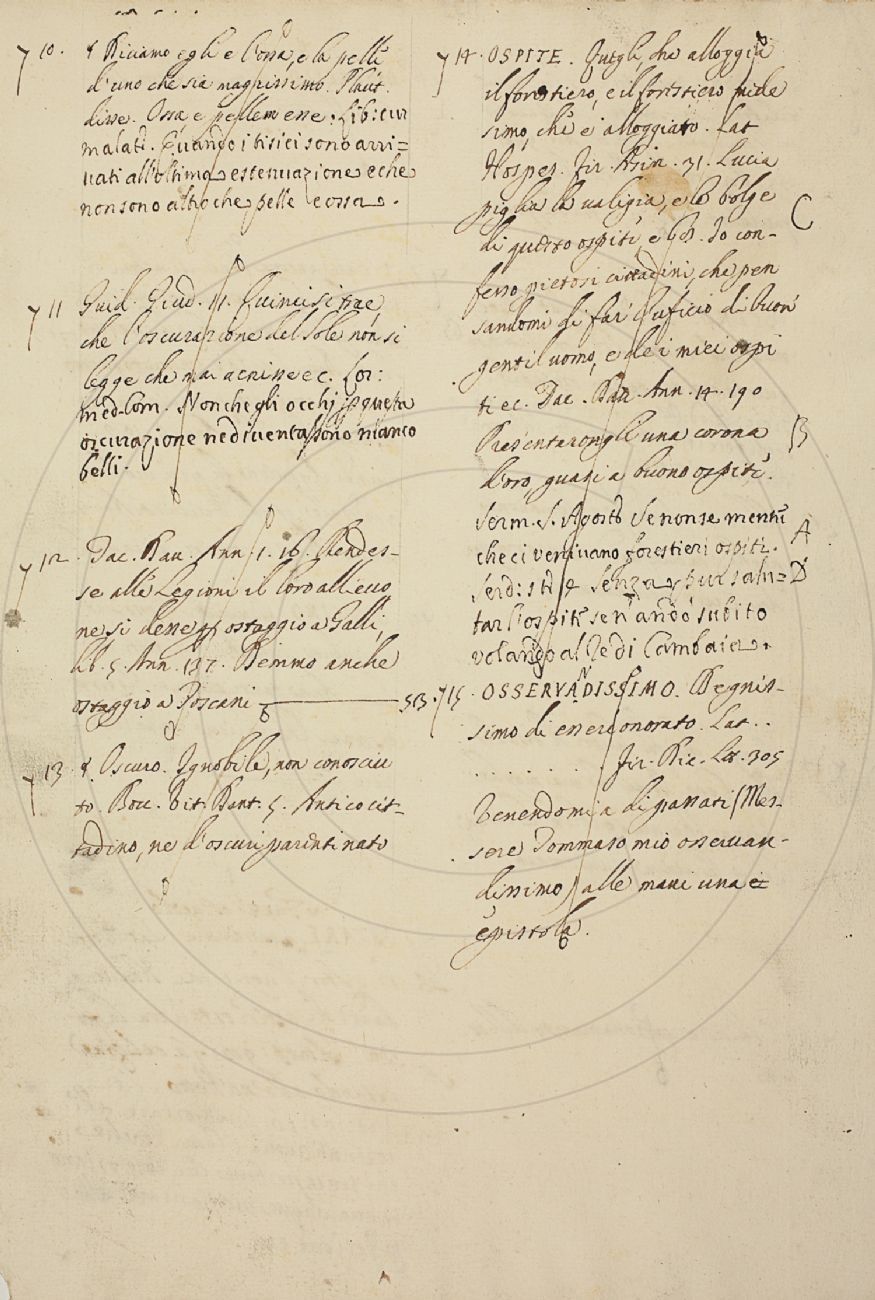 7 10. § Diciamo egli e l'ossa, e la pelle
d'uno che sia magrissimo. Plaut.
disse. Ossa, e pellem esse. Lib: cur
malatt. Quando i tisici sono arri=
vati all'ultima estenuazione e che
non sono altro che pelle e ossa.
7 11 Guid. Giud. 11. Quinci si trae,
che l'oscurazione del sole non si
legge che mai acrisse ec. Lor:
med. Com. Non che gli occhj p questa
oscurazione ne diventassono manco
belli.
7 12. Dav. Ann. 1. 16. Rendes-
se alle Legioni il loro allievo,
ne si desse p ostaggio a Galli,
Lib. 5. Ann. 137. Demmo anche
ostaggio a Toscani 513.
7 13 § Oscuro. Ignobile, non conosciu
to. Bocc. Vit. Dant. 5. Antico cit-
tadino, ne d'oscuri parenti nato
7 14. OSPITE. Quegli, che alloggia
il forestiero, e il forestiero mede
simo, che è alloggiato. Lat
Hospes. Fir. Asin. 31. Lucia
piglia la valigia, e le bolge
di questo ospite, e 68. Io con- C
fesso pietosi cittadini, che pen
sandomi di far l'uficio di buon
gentiluomo, e de i miei ospi
ti ec. Dav. Ann. 14. 190
Presentarongli una corona B
d'oro, quasi a buono ospite.
Serm. S. Agost. Se non se mentre A
che ci venivano forestieri ospiti.
Serd: st. Senza pur salu= D
tar l'ospite se n'andò subito
volando al Re di Cambaia.
7 15 OSSERVANDISSIMO. Degnis-
simo di essere onorato. Lat. .
. . . . . . . Fir. Lett. 305
Venendomi a di passati (Mes-
sere Tommaso mio osservan-
dissimo) alle mani una e=
epistola.